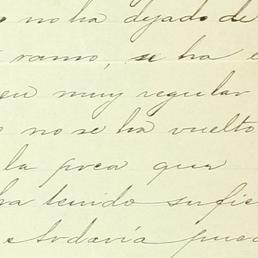 no ha dejado de
ramo, se ha e
en muy regular
no se ha vuelto
la poca qua
ha tenido sufic
todavía pued